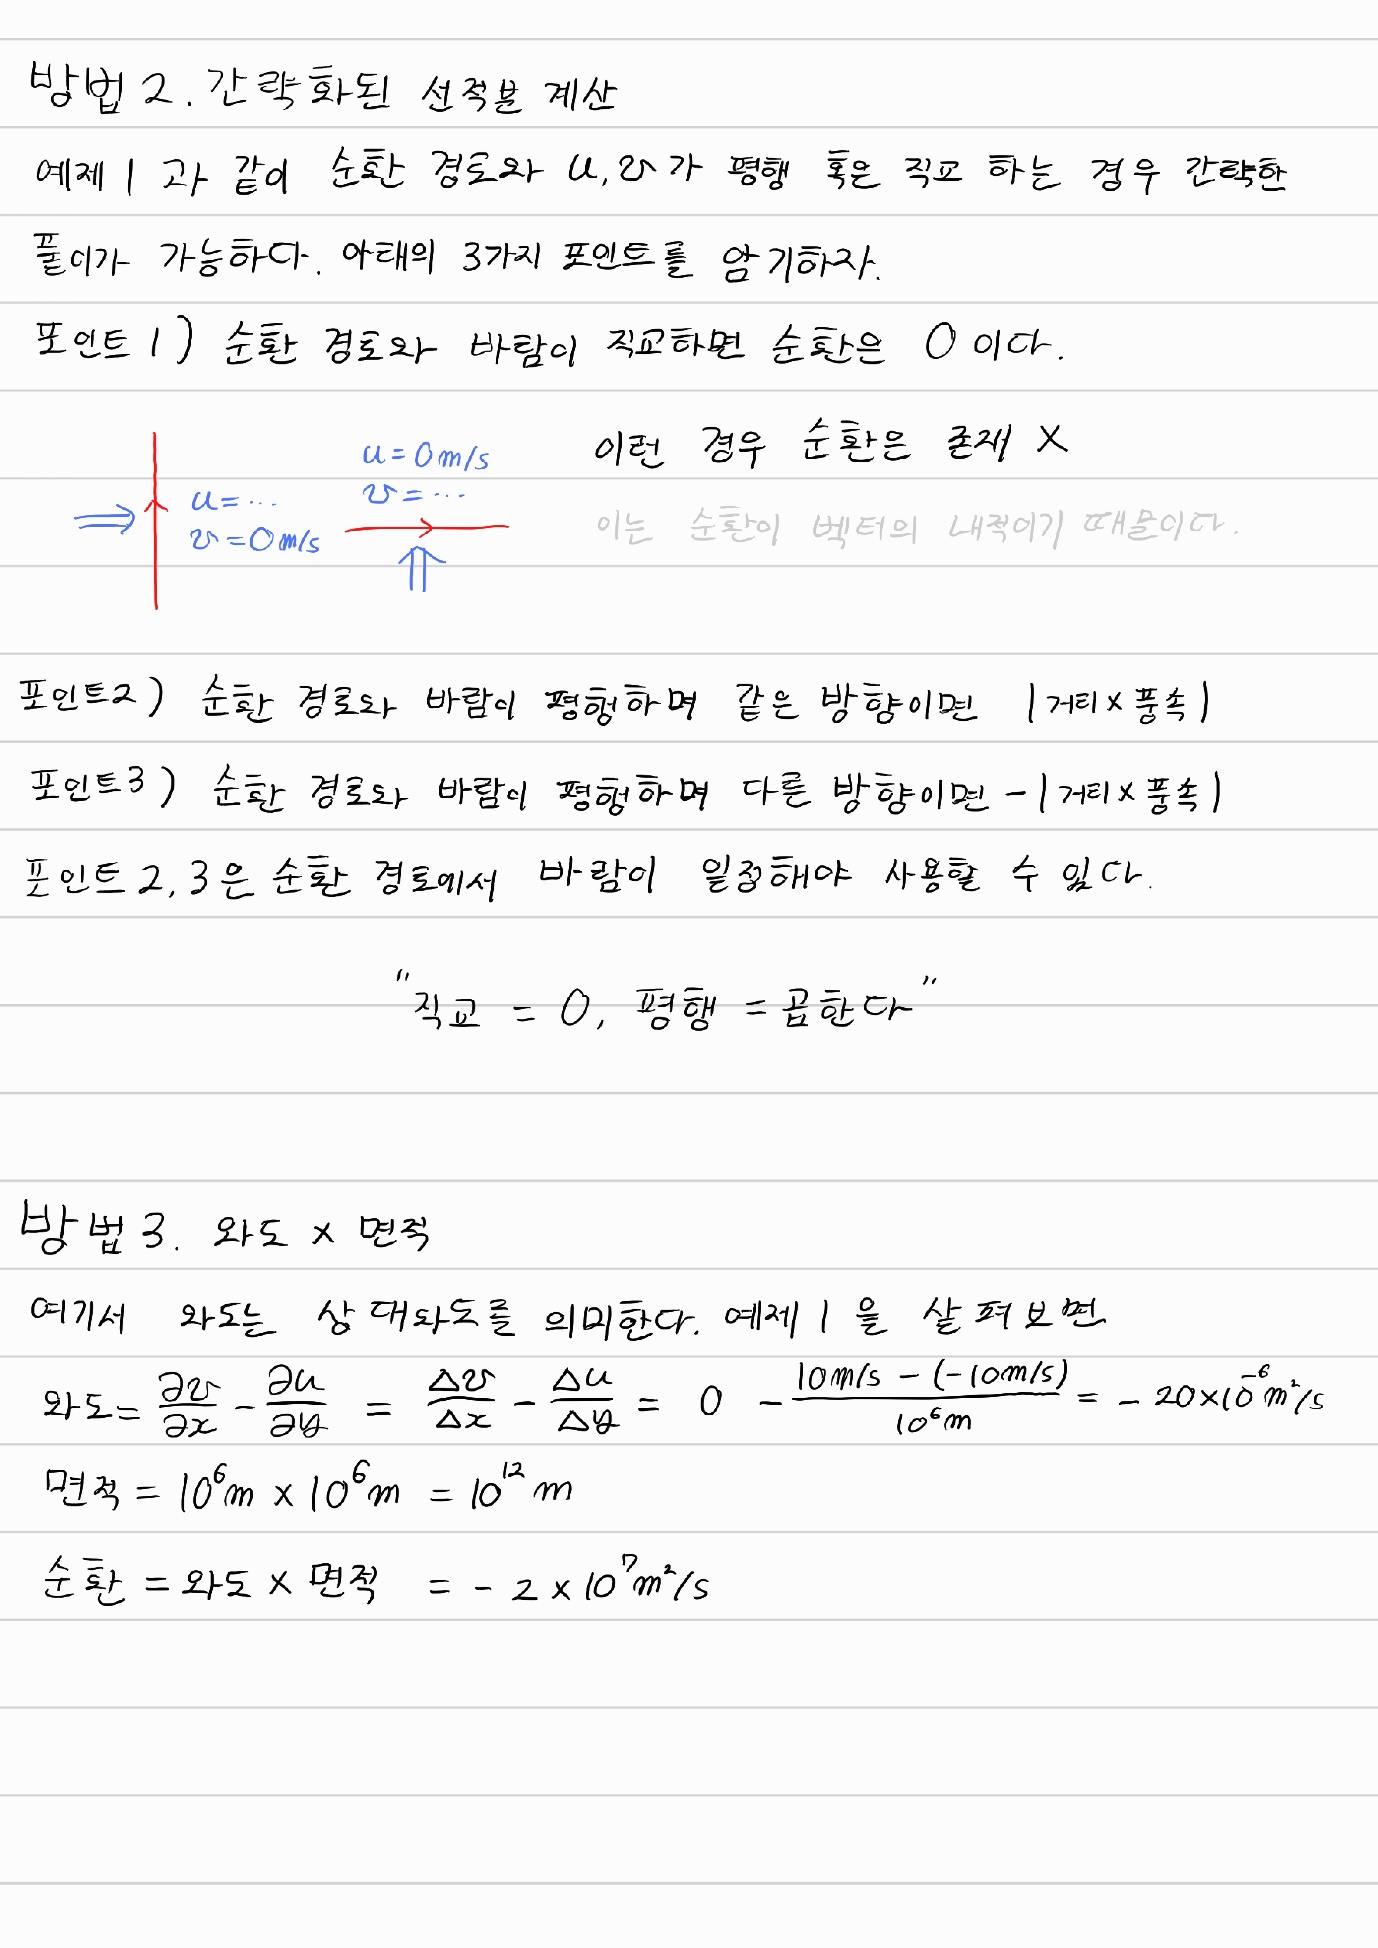 방법 2. 간략화된 선적분 계산
예제 1 과 같이 순환 경로와 u, v가 평행 혹은 직교 하는 경우 간략한
풀이가 가능하다. 아래의 3가지 포인트를 암기하자.
포인트 1) 순환 경로와 바람이 직교하면 순환은 0 이다.
이런 경우 순환은 존재 X
u = 0 m/s
v = ...
u = ...
v = 0 m/s
이는 순환이 벡터의 내적이기 때문이다.
포인트2) 순환 경로와 바람이 평행하며 같은 방향이면 |거리 × 풍속|
포인트3) 순환 경로와 바람이 평행하며 다른 방향이면 -|거리 × 풍속|
포인트 2, 3은 순환 경로에서 바람이 일정해야 사용할 수 있다.
"직교 = 0, 평행 = 곱한다"
방법 3. 와도 × 면적
여기서 와도는 상대와도를 의미한다. 예제 1 을 살펴보면
와도 = ∂v/∂x - ∂u/∂y = Δv/Δx - Δu/Δy = 0 - (10m/s - (-10m/s))/10⁶m = - 20×10⁻⁶m²/s
면적 = 10⁶m × 10⁶m = 10¹² m
순환 = 와도 × 면적 = - 2 × 10⁷m²/s